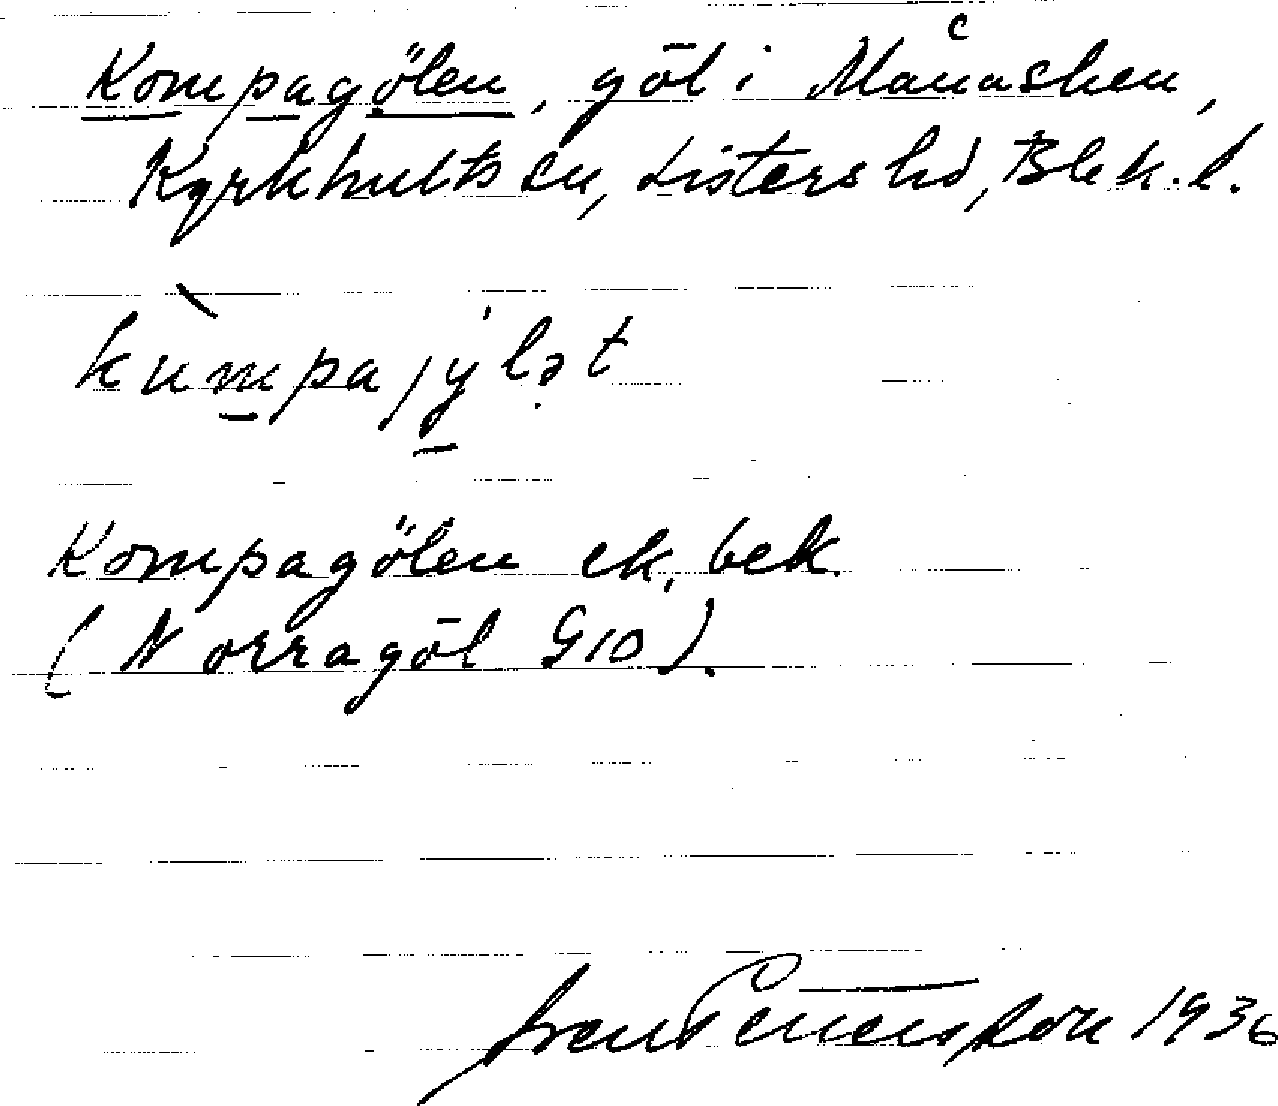 c
Kompagölen, göl i Månasken,
Kyrkhults sn, Listers hd, Blek. l.
kùmpajýlət
Kompagölen ek. bek.
(Norragöl G10).
Sven Petersson 1936